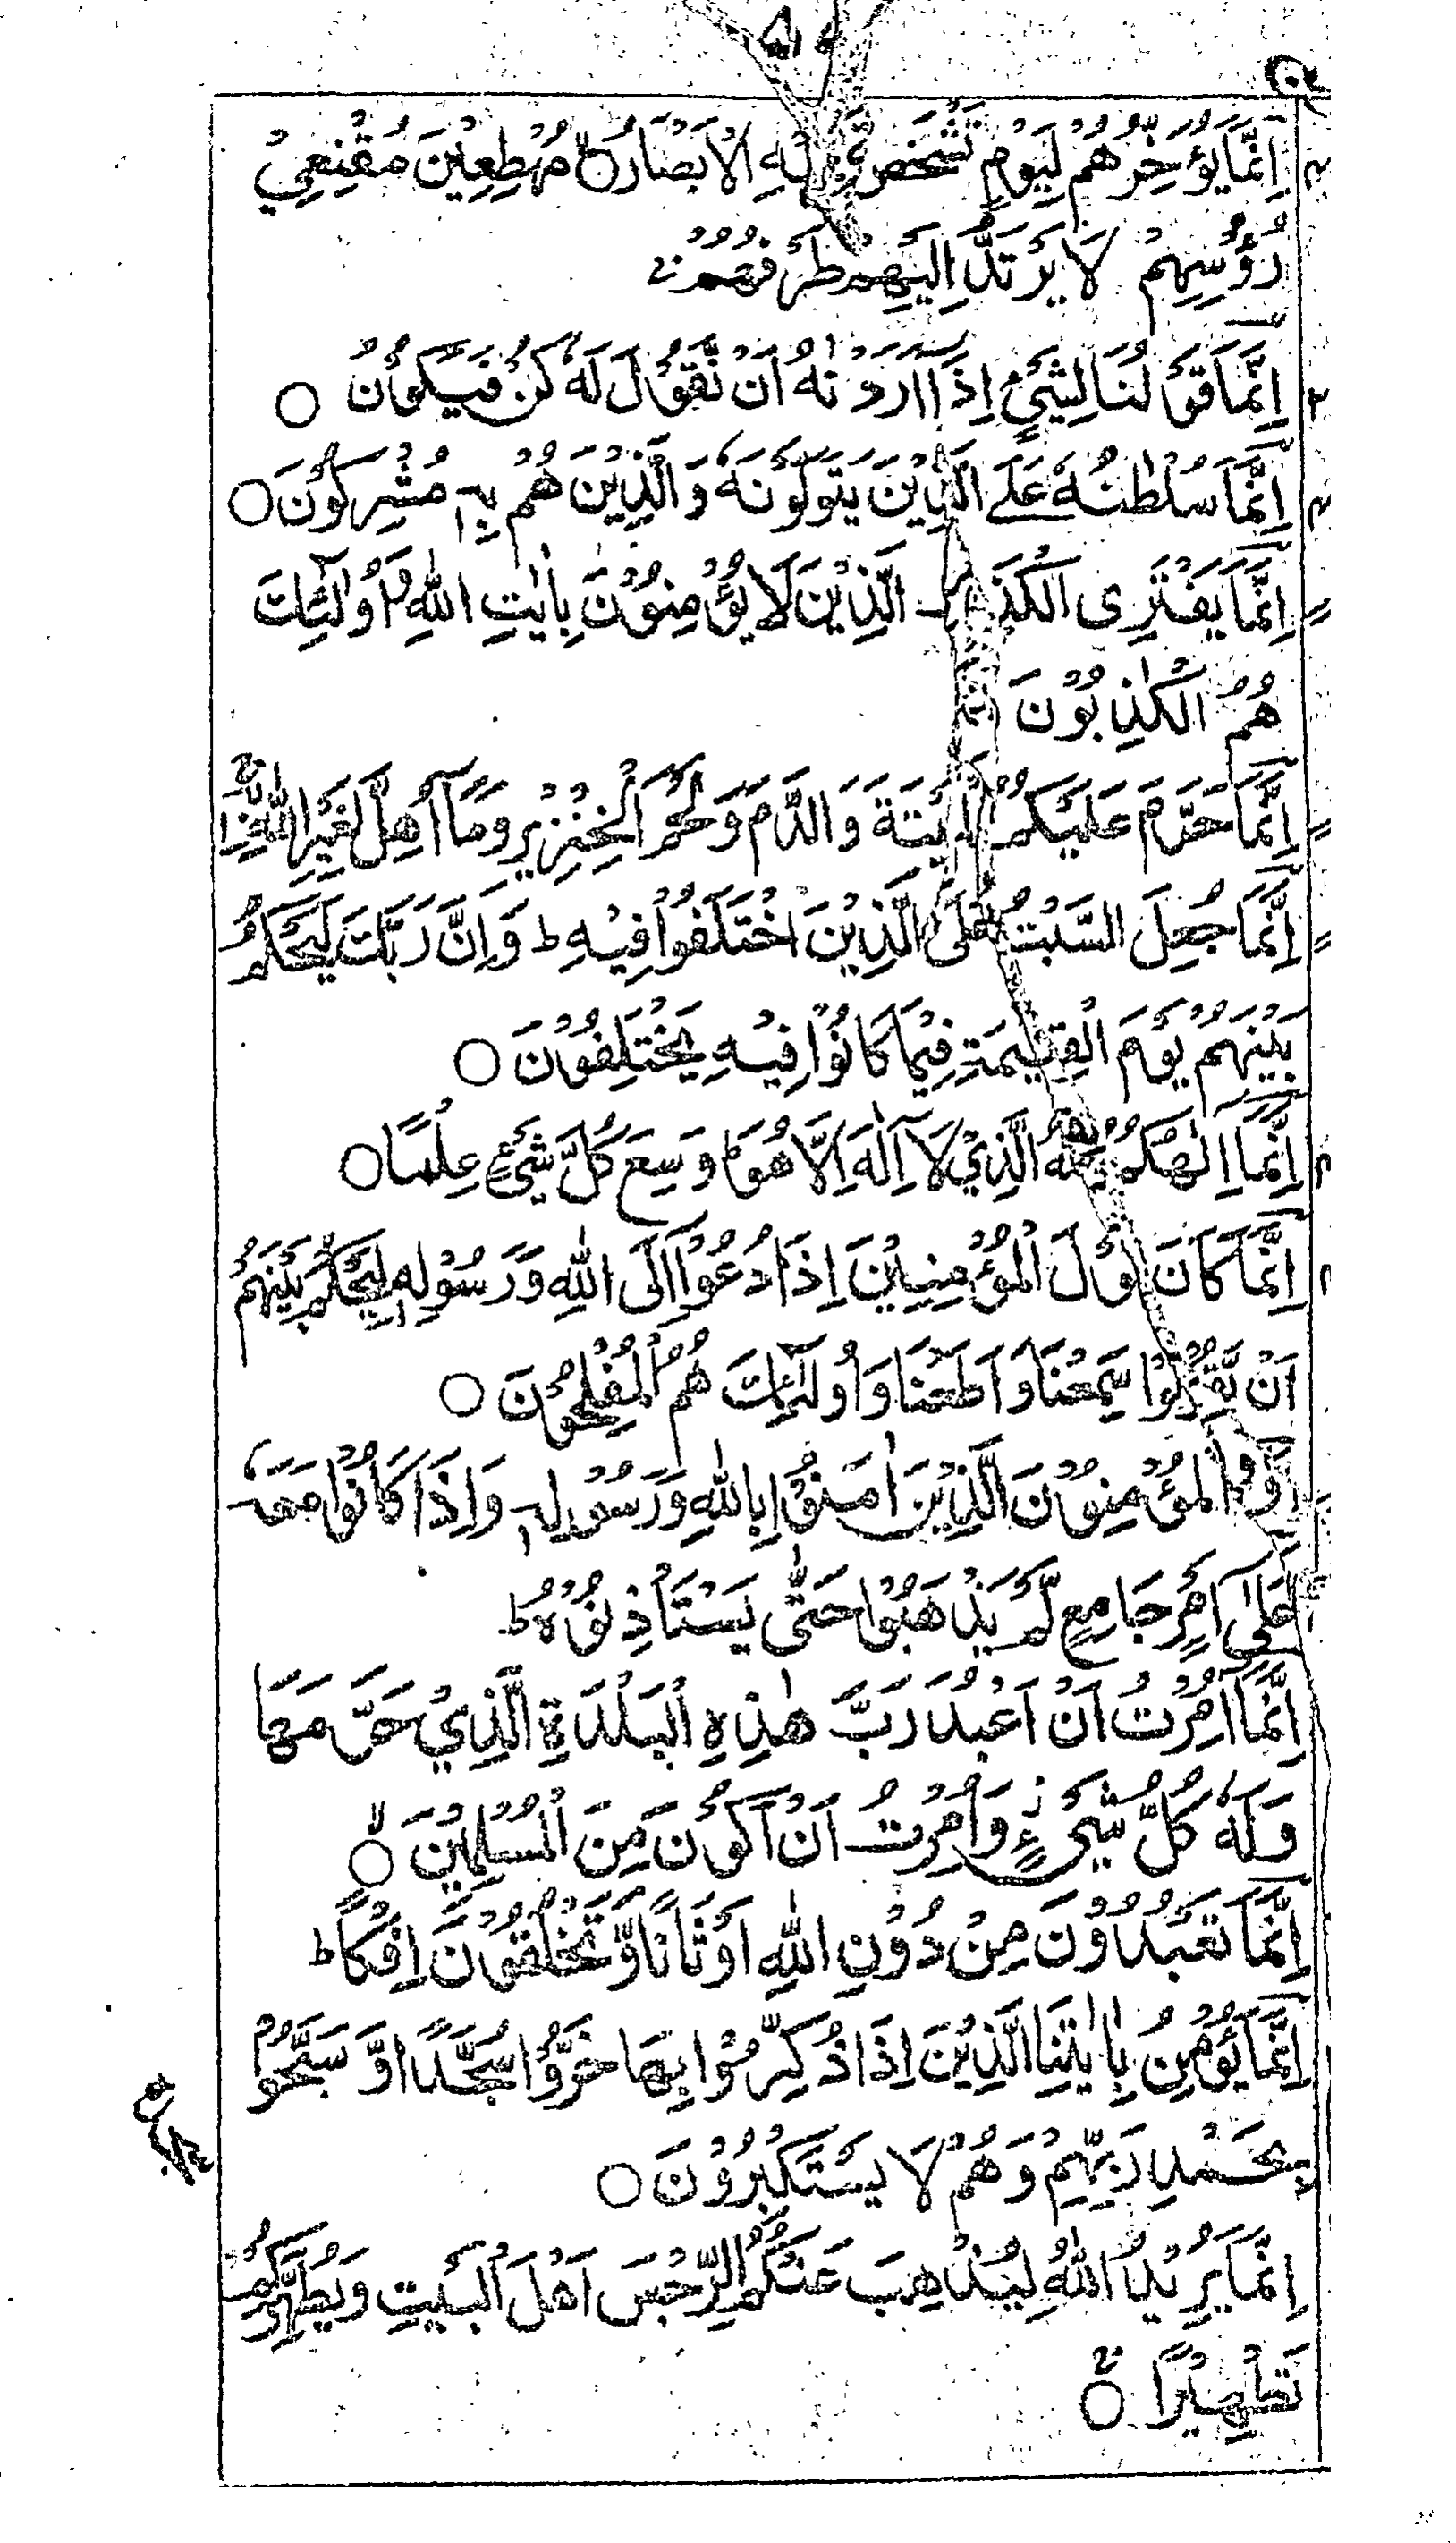 اِنَّمَا يُؤَخِّرُهُمْ لِيَوْمٍ تَشْخَصُ فِيْهِ الْاَبْصَارُ مُهْطِعِيْنَ مُقْنِعِيْ
رُؤُسِهِمْ لَا يَرْتَدُّ اِلَيْهِمْ طَرْفُهُمْ
اِنَّمَا قَوْلُنَا لِشَيْءٍ اِذَا اَرَدْنٰهُ اَنْ نَّقُوْلَ لَهٗ كُنْ فَيَكُوْنُ ○
اِنَّمَا سُلْطٰنُهٗ عَلَى الَّذِيْنَ يَتَوَلَّوْنَهٗ وَالَّذِيْنَ هُمْ بِهٖ مُشْرِكُوْنَ ○
اِنَّمَا يَفْتَرِى الْكَذِبَ الَّذِيْنَ لَا يُؤْمِنُوْنَ بِاٰيٰتِ اللّٰهِ وَاُولٰٓئِكَ
هُمُ الْكٰذِبُوْنَ
اِنَّمَا حَرَّمَ عَلَيْكُمُ الْمَيْتَةَ وَالدَّمَ وَلَحْمَ الْخِنْزِيْرِ وَمَآ اُهِلَّ لِغَيْرِ اللّٰهِ
اِنَّمَا جُعِلَ السَّبْتُ عَلَى الَّذِيْنَ اخْتَلَفُوْا فِيْهِ ط وَاِنَّ رَبَّكَ لَيَحْكُمُ
بَيْنَهُمْ يَوْمَ الْقِيٰمَةِ فِيْمَا كَانُوْا فِيْهِ يَخْتَلِفُوْنَ ○
اِنَّمَآ اِلٰهُكُمُ اللّٰهُ الَّذِيْ لَآ اِلٰهَ اِلَّا هُوَ ط وَسِعَ كُلَّ شَيْءٍ عِلْمًا ○
اِنَّمَا كَانَ قَوْلَ الْمُؤْمِنِيْنَ اِذَا دُعُوْا اِلَى اللّٰهِ وَرَسُوْلِهٖ لِيَحْكُمَ بَيْنَهُمْ
اَنْ يَّقُوْلُوْا سَمِعْنَا وَاَطَعْنَا وَاُولٰٓئِكَ هُمُ الْمُفْلِحُوْنَ ○
الْمُؤْمِنُوْنَ الَّذِيْنَ اٰمَنُوْا بِاللّٰهِ وَرَسُوْلِهٖ وَاِذَا كَانُوْا مَعَهٗ
عَلٰٓى اَمْرٍ جَامِعٍ لَّمْ يَذْهَبُوْا حَتّٰى يَسْتَاْذِنُوْهُ ط
اِنَّمَآ اُمِرْتُ اَنْ اَعْبُدَ رَبَّ هٰذِهِ الْبَلْدَةِ الَّذِيْ حَرَّمَهَا
وَلَهٗ كُلُّ شَيْءٍ وَاُمِرْتُ اَنْ اَكُوْنَ مِنَ الْمُسْلِمِيْنَ ○
اِنَّمَا تَعْبُدُوْنَ مِنْ دُوْنِ اللّٰهِ اَوْثَانًا وَّتَخْلُقُوْنَ اِفْكًا ط
اِنَّمَا يُؤْمِنُ بِاٰيٰتِنَا الَّذِيْنَ اِذَا ذُكِّرُوْا بِهَا خَرُّوْا سُجَّدًا وَّ سَبَّحُوْا
بِحَمْدِ رَبِّهِمْ وَهُمْ لَا يَسْتَكْبِرُوْنَ ○
اِنَّمَا يُرِيْدُ اللّٰهُ لِيُذْهِبَ عَنْكُمُ الرِّجْسَ اَهْلَ الْبَيْتِ وَيُطَهِّرَكُمْ
تَطْهِيْرًا ○